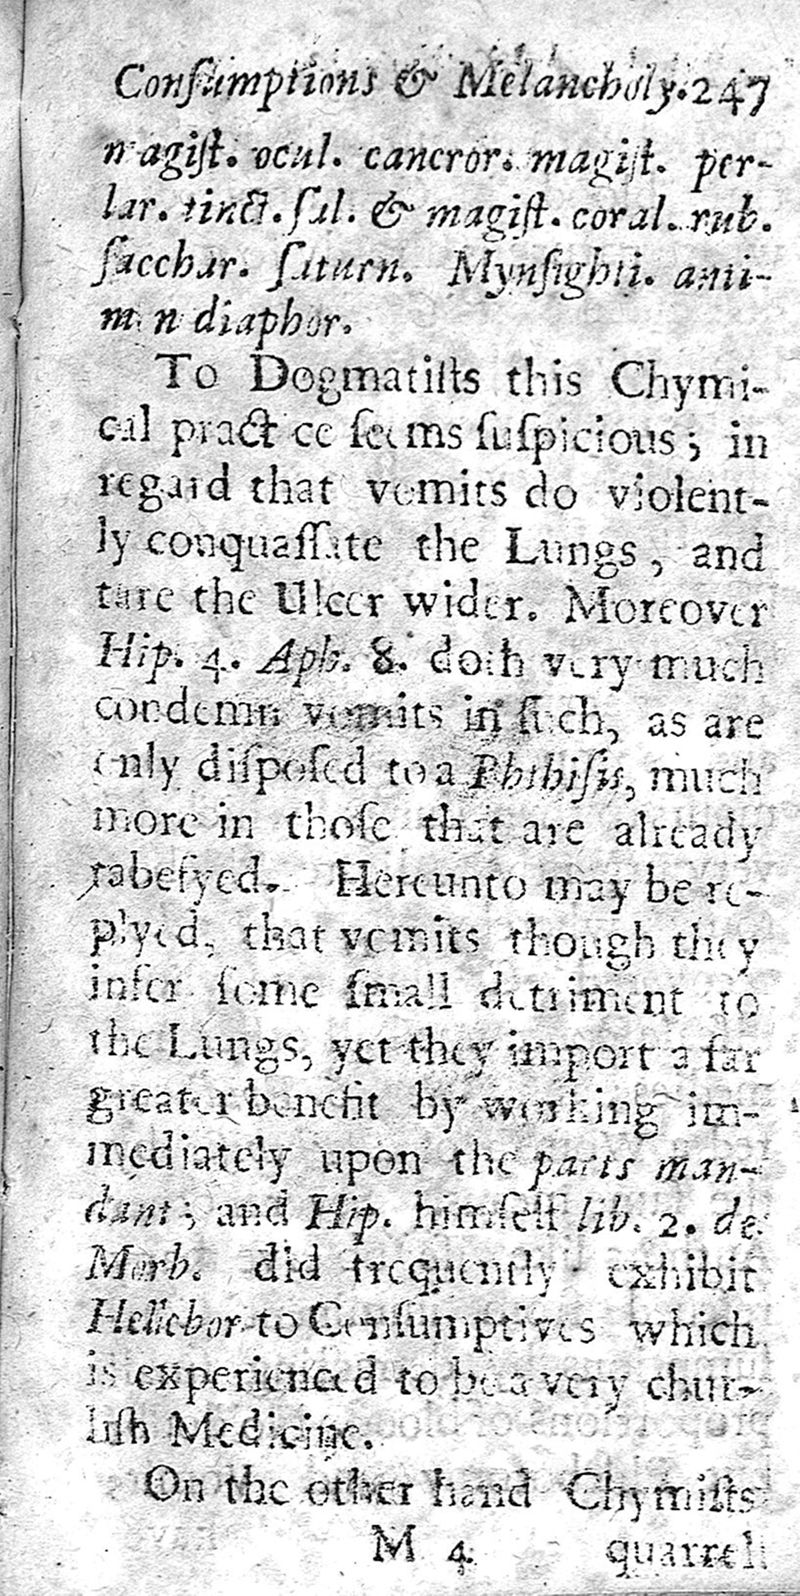 Conſumptions & Melancholy. 247
magiſt. ocul. cancror. magiſt. per-
lar. tinct. ſal. & magiſt. coral. rub.
ſacchar. ſaturn. Mynſighti. anti-
min diaphor.
To Dogmatiſts this Chymi-
cal practice ſeems ſuſpicious; in
regard that vomits do violent-
ly conquaſſate the Lungs, and
tare the Ulcer wider. Moreover
Hip. 4. Aph. 8. doth very much
condemn vomits in ſuch, as are
only diſpoſed to a Phthiſis, much
more in thoſe that are already
tabefyed. Hereunto may be re-
plyed, that vomits though they
infer ſome ſmall detriment to
the Lungs, yet they import a far
greater benefit by working im-
mediately upon the parts man-
dant; and Hip. himſelf lib. 2. de
Morb. did frequently exhibit
Hellebor to Conſumptives which
is experienced to be a very chur-
liſh Medicine.
On the other hand Chymiſts
M 4 quarrell